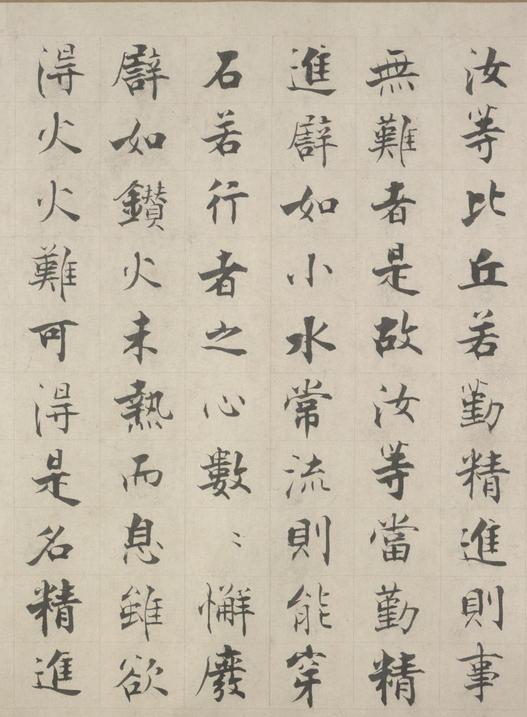 汝等比丘若勤精進則事
無難者是故汝等當勤精
進譬如小水常流則能穿
石若行者之心數〻懈廢
譬如鑽火未熱而息雖欲
得火火難可得是名精進